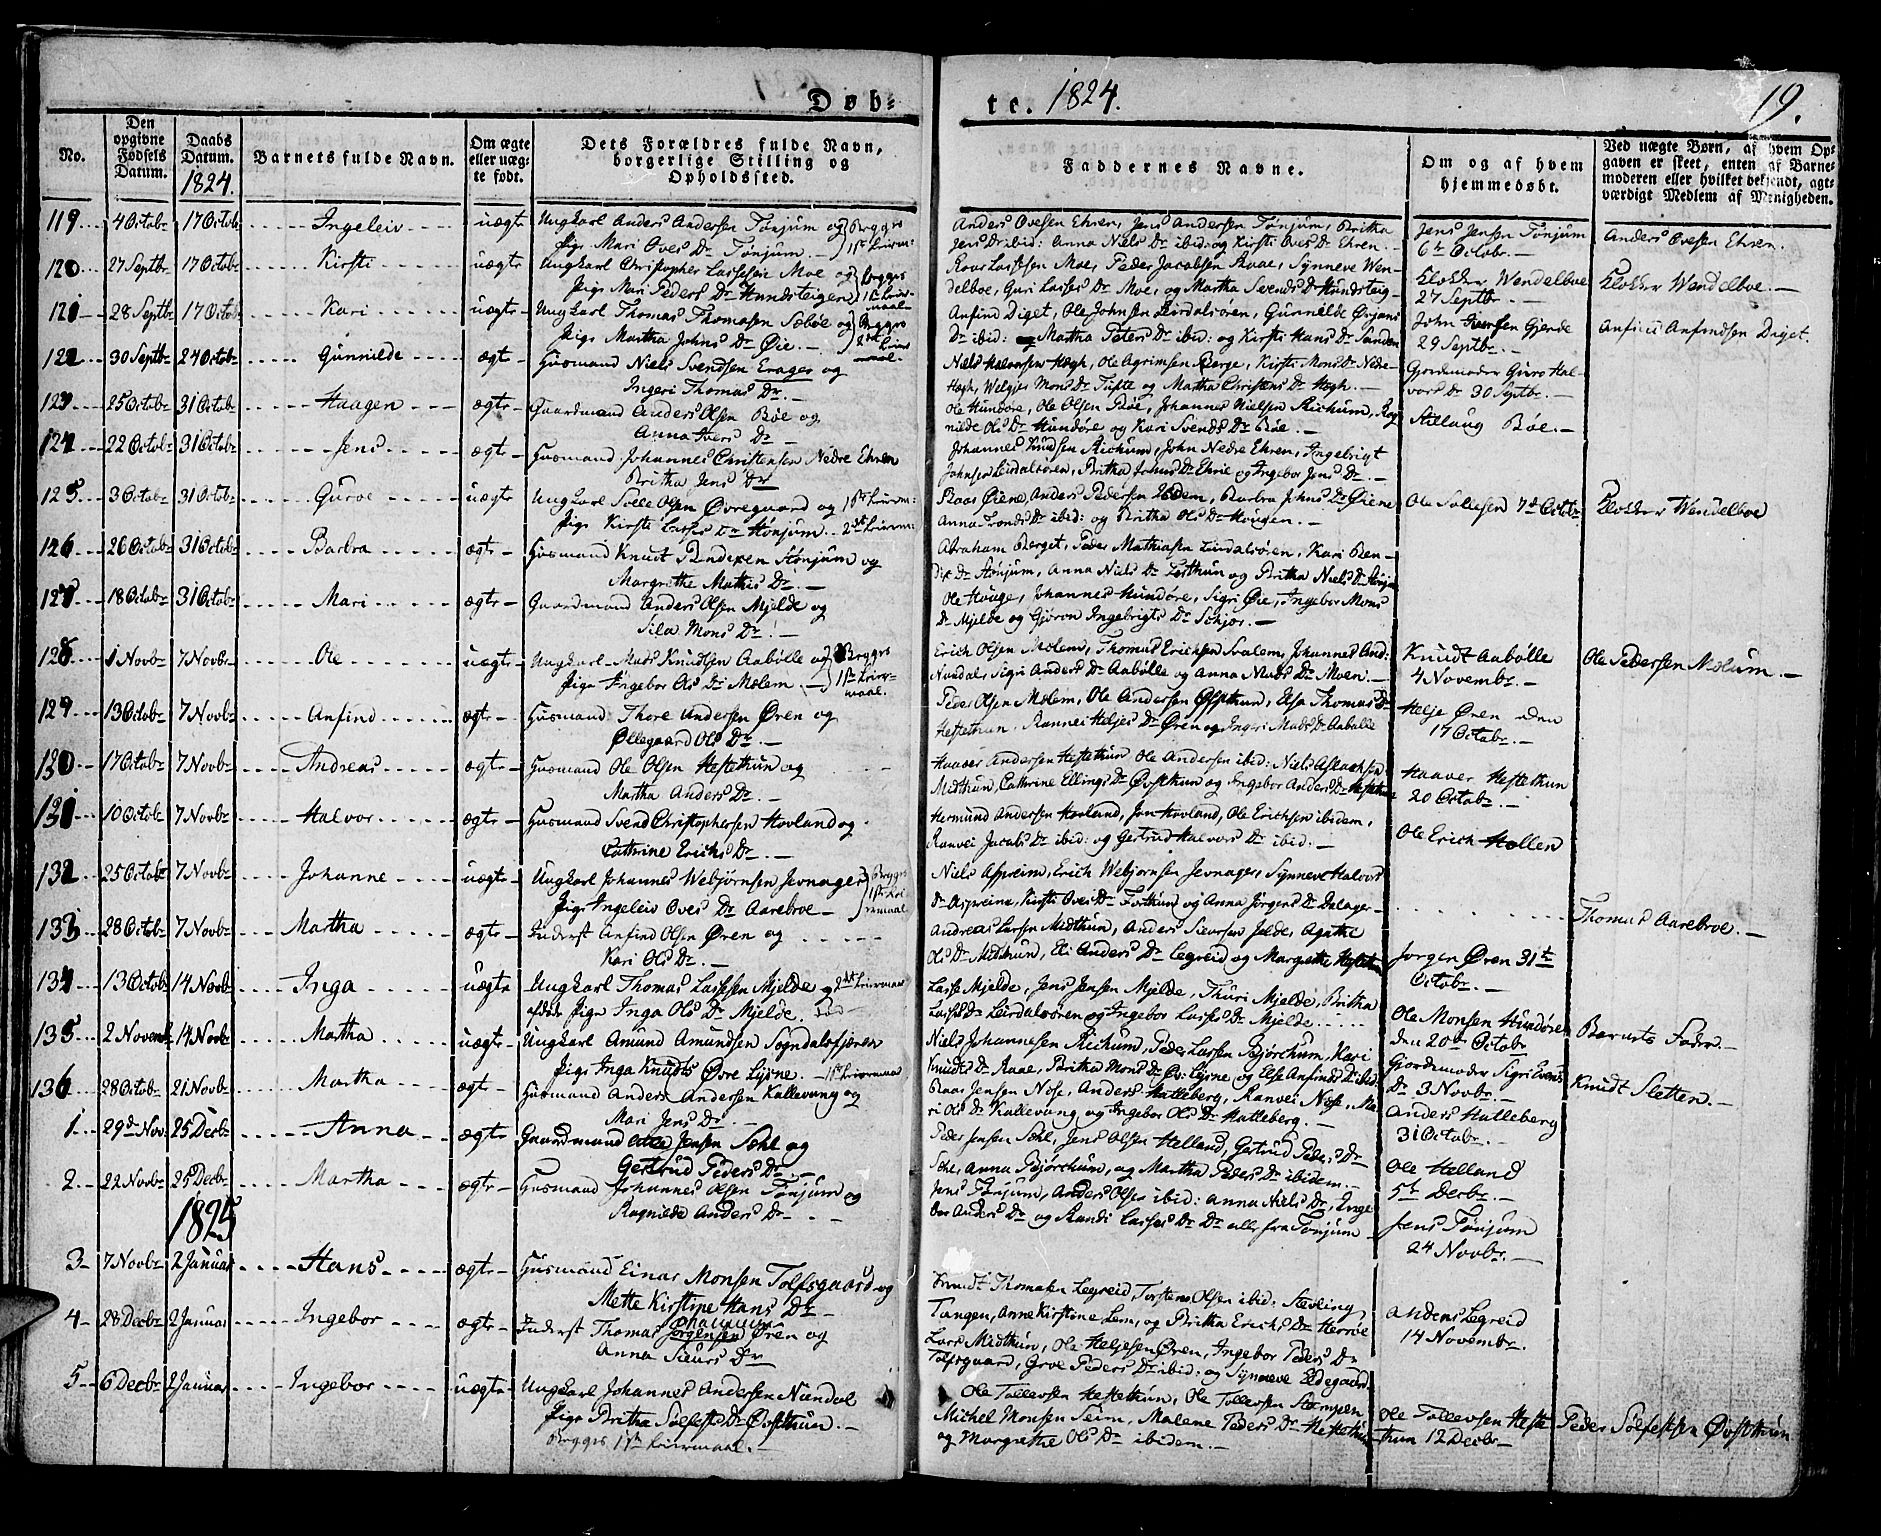 Døb-
te. 1824.
19.
No.
Den opgivne Fødsels Datum.
Daabs Datum. 1824.
Barnets fulde Navn.
Om ægte eller uæg- te født.
Dets Forældres fulde Navn, borgerlige Stilling og Opholdssted.
Faddernes Navne.
Om og af hvem hjemmedøbt.
Ved uægte Børn, af hvem Op- gaven er skeet, enten af Barne- moderen eller hvilket bekjendt, agt- værdigt Medlem af Menigheden.
119 4 Octob 17 Octob Ingeleiv uægte Ungkarl Anders Andersen Tønjum og Begges
Pige Mari Oves Dr Tønjum. 1ste Leierm:
Anders Ovesen Ehren, Jens Andersen Tønjum, Britha
Jens Dr ibid: Anna Niels Dr ibid: og Kirsti Oves Dr Ehren.
Jens Jensen Tønjum
6te Octobr.
Anders Ovesen Ehren.
120 27 Septbr 17 Octobr Kirsti uægte Ungkarl Christopher Lassesen Moe og Begges
Pige Mari Peders Dr Hundsteigen 1ste Leier- maal
Lassesen Moe, Peder Jacobsen Raae, Synneve Wen-
delboe, Guri Lasses Dr Moe, og Martha Svends Dr Hundsteig
Klokker Wendelboe
27 Septbr.
Klokker Wendelboe.
121 28 Septbr 17 Octob Kari uægte Ungkarl Thomas Thomasen Sæbøe og Begges
Pige Martha Johns Dr Øie. 2det Leier maal.
Anfind Diget, Ole Johnsen Leirdalsøren, Gunnilde
Dr ibid: Martha Peters Dr ibid: og Kirsti Hans Dr Sanden
John Gjerde
29 Septbr.
Anfind Anfindsen Diget.
122 30 Septbr 24 Octobr Gunnilde ægte Husmand Niels Svendsen Erager og
Ingeri Thomas Dr.
Niels Halvorsen Hægh, Ole Agrimsen Berge, Kirsti Mons Dr Nedre
Hægh, Welgjer Mons Dr Tufte og Martha Christens Dr Hægh.
Gjordemoder Guro Hal-
vors Dr 30 Septbr.
123 25 Octob 31 Octob Haagen ægte Gaardmand Anders Olsen Bøe og
Anna Ivers Dr
Ole Hundøre, Ole Olsen Bøe, Johannes Nielsen Richum, Rag
nilde Ols Dr Hundøre og Kari Svends Dr Bøe.
Aslaug Bøe.
124 22 Octob 31 Octob Jens ægte Husmand Johannes Christensen Nedre Ehren
Britha Jens Dr
Johannes Knudsen Richum, John Nedre Ehren, Ingebrigt
Johnsen Leirdalsøren, Britha Johns Dr Ehre og Ingebor Jens Dr.
125 3 Octobr 31 Octobr Guroe uægte Ungkarl Solle Olsen Øvregaard og 1ste Leierm:
Pige Kirsti Lasses Dr Hønjum. 2det Leierm:
Øiene, Anders Pedersen, Barbra Johns Dr Øiene
Anna Tronds Dr ibid: og Britha Ols Dr Hougen.
Ole Sollesen 7de Octobr
Klokker Wendelboe
126 26 Octobr 31 Octobr Barbra ægte Husmand Knut Bendixen Stønjum og
Margrethe Mathis Dr.
Abraham Berget, Peder Mathiasen Leirdalsøren, Kari Ben-
dix Dr Stønjum, Anna Niels Dr og Britha Niels Dr Stønjum
127 18 Octobr 31 Octobr Mari ægte Gaardmand Anders Olsen Mjelde og
Sila Mons Dr.
Ole Houge, Johannes Hundøre, Sigri Øie, Ingebor Mons
Dr Mjelde og Gjøron Ingebrigts Dr Schjør.
128 1 Novbr 7 Novbr Ole uægte Ungkarl Mads Knudsen Aabølle og Begges
Pige Ingebor Ols Dr Molem. 1ste Leier- maal.
Erich Olsen Molem, Thomas Erichsen Svalem, Johannes And:
Nundal, Sigri Anders Dr Aabølle og Anna Mads Dr Moen.
Knudt Aabølle
4 Novembr.
Ole Pedersen Molum.
129 13 Octob 7 Novbr Anfind ægte Husmand Thore Andersen Øren og
Øllegaard Ols Dr.
Peder Olsen Molem, Ole Andersen Ofstthun, Elsa Thomas Dr
Hestethun, Rannei Heljes Dr Øren og Ingeri Mads Dr Aabølle
Helje Øren den
17 Octobr.
130 17 Octobr 7 Novbr Andreas ægte Husmand Ole Olsen Hestethun og
Martha Anders Dr.
Haaver Andersen Hestethun Ole Andersen ibid: Niels Aslachsen
Midthun, Cathrine Ellings Dr Øvstthun og Ingebor Anders Dr Hestethun
Haaver Hestethun
20 Octobr.
131 10 Octob 7 Novbr Halvor ægte Husmand Svend Christophersen Hovland og
Cathrine Erichs Dr.
Hermund Andersen Hovland, Jon Hovland, Ole Erichsen ibidem,
Ranvei Jacobs Dr ibid: og Gertrud Halvors Dr ibid:
Ole Erich Hollen
132 25 Octobr 7 Novbr Johanne uægte Ungkarl Johannes Webjørnsen Jevnager Begges
Pige Ingeleiv Oves Dr Aarebroe 1ste Lei- ermaal
Niels Aspreim, Erich Webjørnsen Jevnager, Synneve Halvors
Dr Aspreine, Kirsti Oves Dr Forthun og Anna Jørgens Dr Dalager
Thomas Aarebroe.
133 28 Octobr 7 Novbr Martha ægte Inderst Anfind Olsen Øren og
Kari Ols Dr.
Andreas Larsen Midthun, Anders Siversen Jelde, Agathe
Ols Dr Midthun, Eli Anders Dr Legreid og Margrethe Hestethun
Jørgen Øren 31te
Octobr.
134 13 Octob 14 Novbr Inga uægte Ungkarl Thomas Lassesen Mjelde og 2det Leiermaal
afdøde Pige Inga Ols Dr Mjelde.
Lasse Mjelde, Jens Jensen Mjelde, Thuri Mjelde, Britha
Lasses Dr Leirdalsøren og Ingebor Lasses Dr Mjelde
Ole Monsen Hundøre
den 20de Octobr
Barnets Fader.
135 2 Novembr 14 Novbr Martha uægte Ungkarl Amund Amundsen Sogndalsfjæren
Pige Inga Knudts Øvre Ljøsne. 1ste Leiermaal
Niels Johannesen Richum, Peder Lassen Bjørchum, Kari
Knudts Dr Raae, Britha Mons Dr Øv: Ljøsne og Else Anfinds Dr ibid:
Gjordemoder Sigri Evens
Dr 3 Novbr.
Knudt Sletten.
136 28 Octobr 21 Novbr Martha ægte Husmand Anders Andersen Kallevang og
Mari Jens Dr.
Jensen Nøse, Anders Hatleberg, Ranvei Nøse, Ma-
ri Ols Dr Kallevang, og Ingebor Ols Dr Hatleberg.
Anders Hatleberg
31 Octobr.
1 29de Nov: 25 Decbr Anna ægte Gaardmand Jensen Sæhl og
Gertrud Peders Dr.
Peder Jensen Sæhl, Jens Olsen Helland, Gertrud Peders Dr
Sæhl, Anna Bjørchum, og Martha Peders Dr ibidem.
Ole Helland
5te Decbr.
2 22 Novbr 25 Decbr Martha ægte Husmand Johannes Olsen Tønjum og
Ragnilde Anders Dr
Jens Tønjum, Anders Olsen ibid: Anna Niels Dr, Inge
bor Anders Dr og Randi Lasses Dr Dr alle fra Tønjum
Jens Tønjum
24 Novbr.
1825
3 7 Novbr 2 Januar Hans ægte Husmand Einar Monsen Tolfsgaard og
Mette Kirstine Hans Dr
Knudt Thomasen Legreid, Torsten Olsen ibid:
Tangen, Anne Kirstine Lem, og Britha Erichs Dr Herrøe
Anders Legreid
14 Novembr.
4 28 Decbr 2 Januar Ingebor ægte Inderst Thomas Johannesen Øren og
Anna Siurs Dr
Lars Midthun, Ole Heljesen Øren, Ingebor Peders Dr
Tolfsgaard, Groe Peders Dr ibid: og Synneve Eldegaard.
5 6 Decbr 2 Januar Ingebor uægte Ungkarl Johannes Andersen Nundal
Pige Britha Sølfests Dr Øvstthun.
Begges 1ste Leiermaal.
Ole Tollevsen Hestethun, Ole Tollevsen Stampen
Michel Monsen Seim, Malene Peders Dr Hestethun
og Margrethe Ols Dr ibidem.
Ole Tollevsen Heste
thun 12 Decbr
Peder Sølfestsen Øvstthun